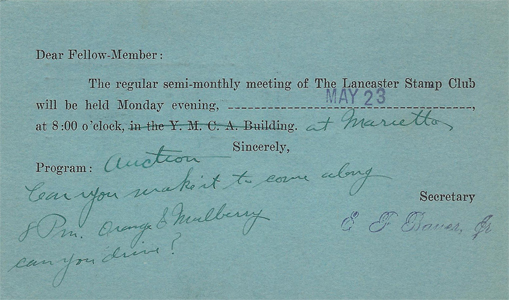 Dear Fellow-Member:
The regular semi-monthly meeting of The Lancaster Stamp Club
will be held Monday evening, MAY 23,
at 8:00 o'clock, in the Y. M. C. A. Building. at Marietta
Sincerely,
Program: Auction
Can you make it to come along
Secretary
8 Pm. Orange & Mulberry
E F Jr
can you drive?